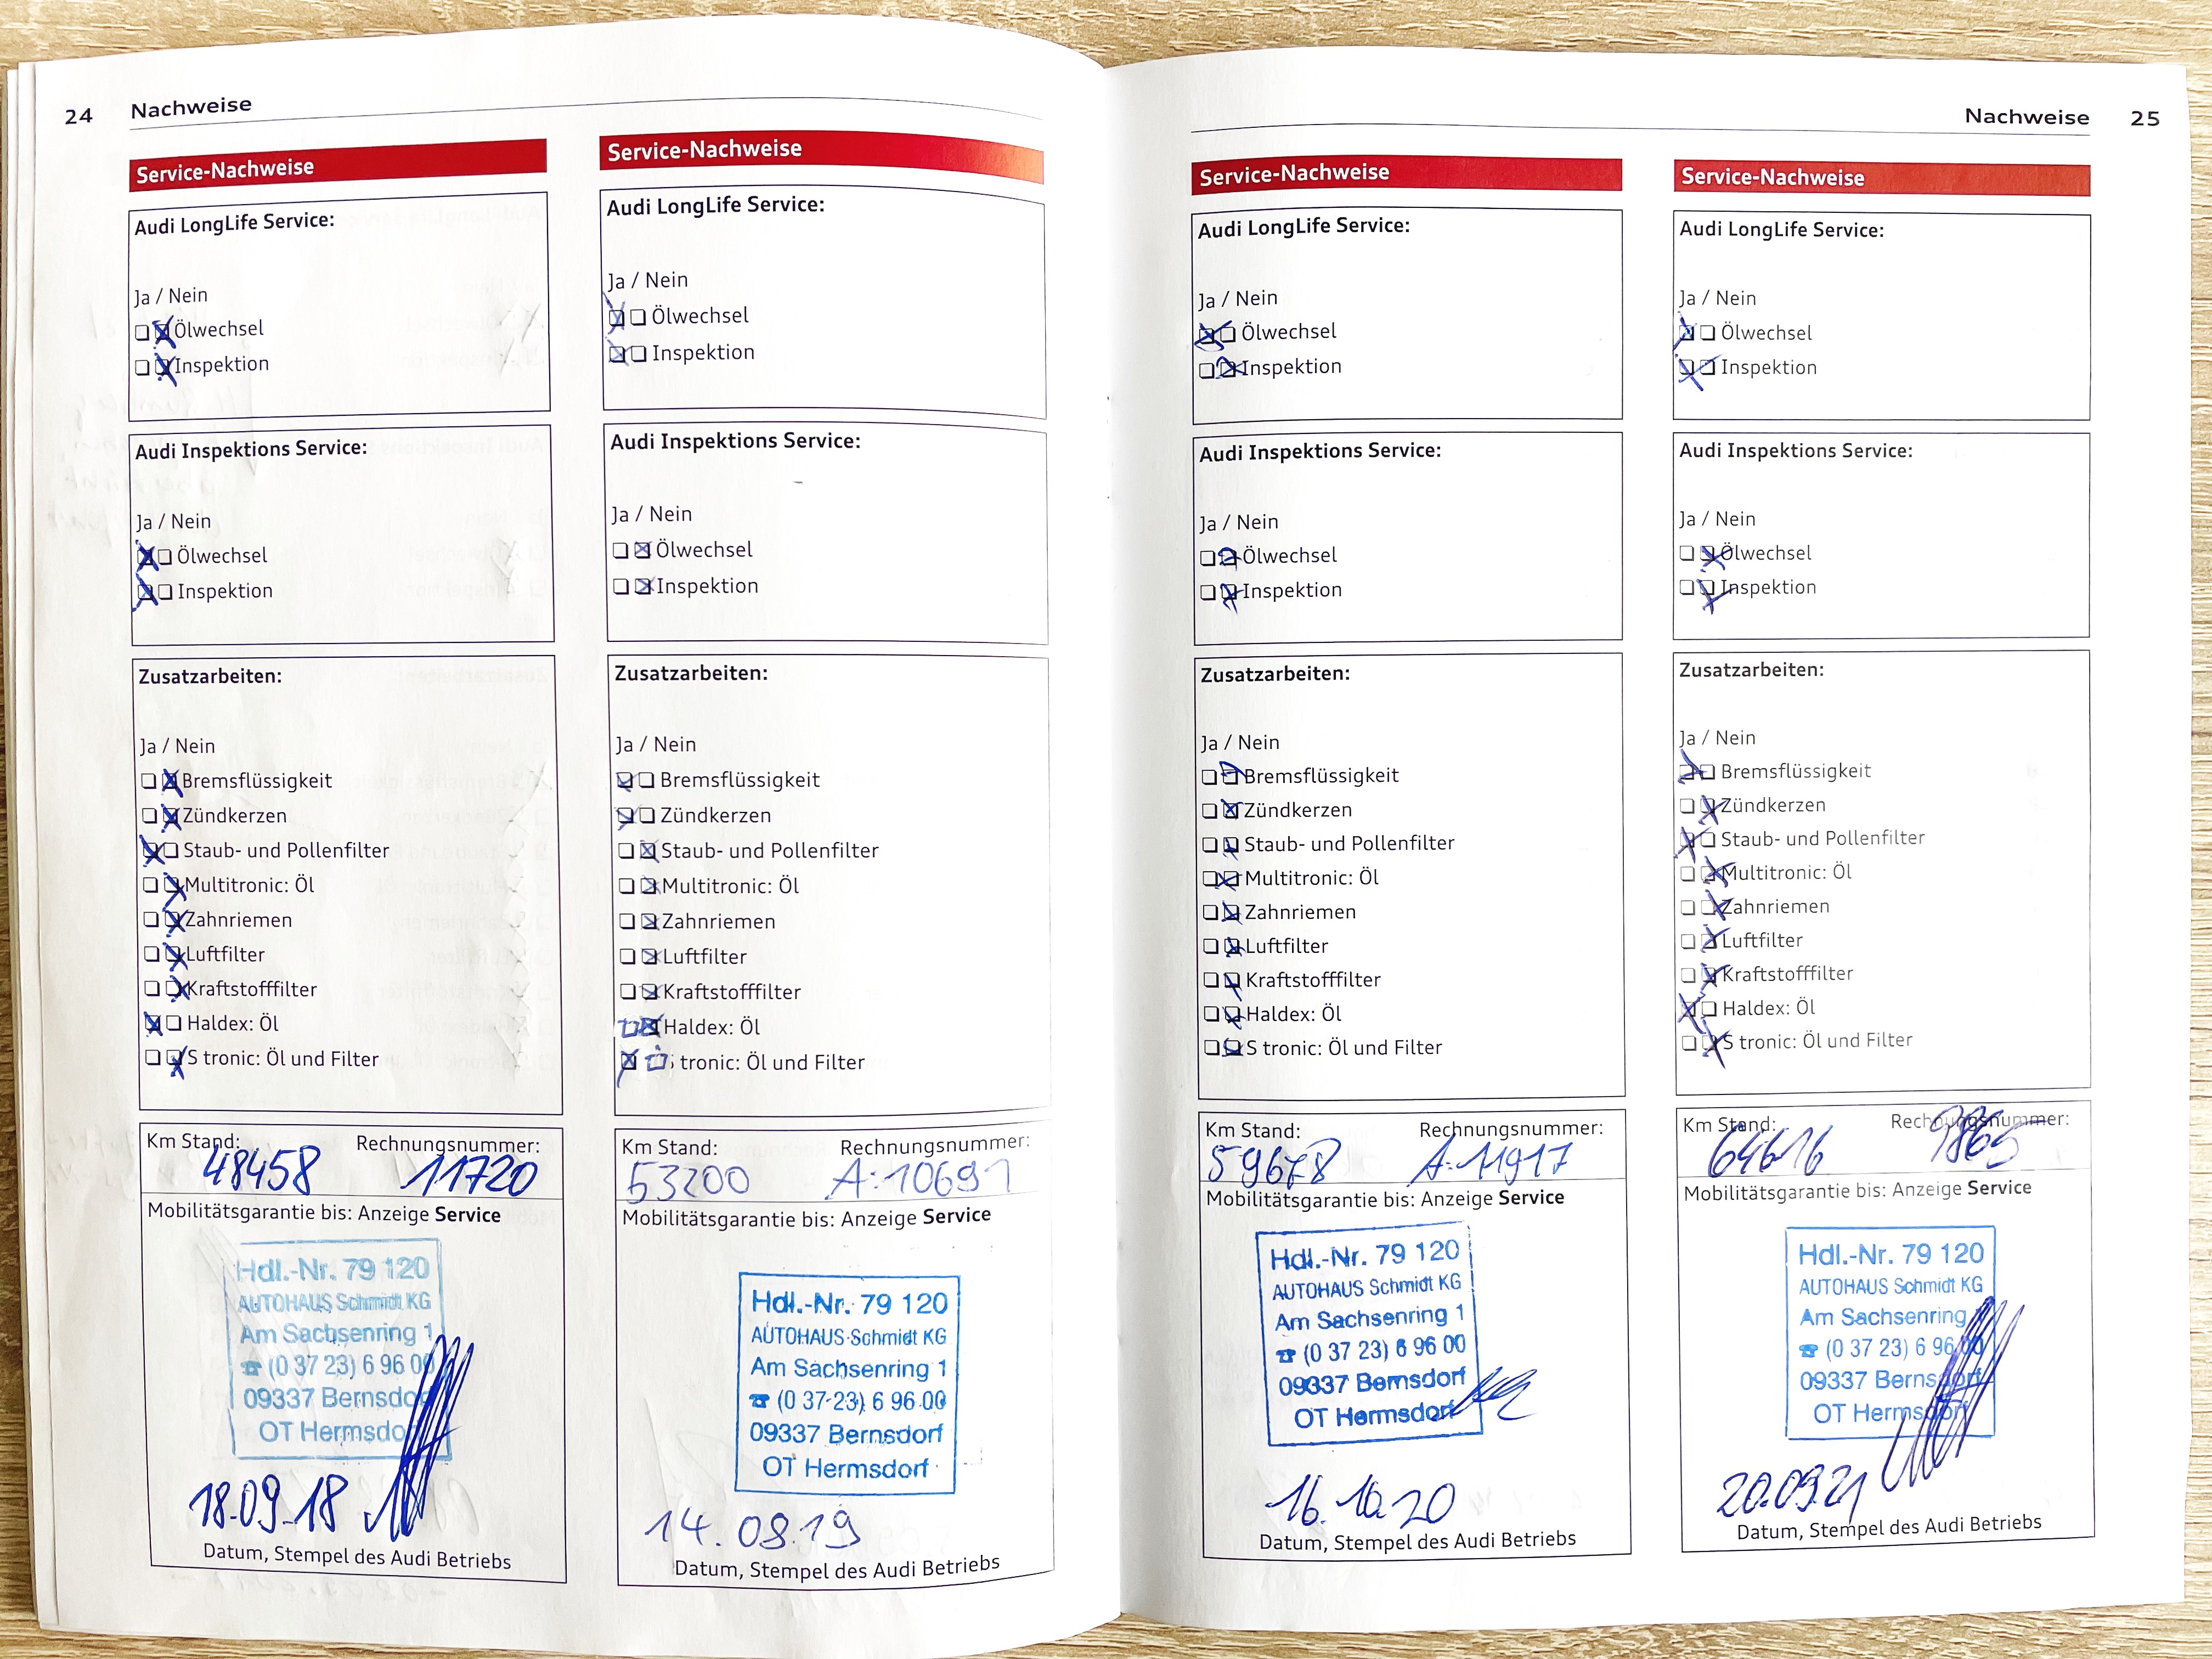 24 Nachweise
Service-Nachweise
Audi LongLife Service:
Ja / Nein
Ölwechsel
Inspektion
Audi Inspektions Service:
Ja / Nein
Ölwechsel
Inspektion
Zusatzarbeiten:
Ja / Nein
Bremsflüssigkeit
Zündkerzen
Staub- und Pollenfilter
Multitronic: Öl
Zahnriemen
Luftfilter
Kraftstofffilter
Haldex: Öl
S tronic: Öl und Filter
Km Stand: Rechnungsnummer:
48458 11720
Mobilitätsgarantie bis: Anzeige Service
Hdl.-Nr. 79 120
AUTOHAUS Schmidt KG
Am Sachsenring 1
☎ (0 37 23) 6 96 00
09337 Bernsdorf
OT Hermsdorf
18.09.18
Datum, Stempel des Audi Betriebs
Service-Nachweise
Audi LongLife Service:
Ja / Nein
Ölwechsel
Inspektion
Audi Inspektions Service:
Ja / Nein
Ölwechsel
Inspektion
Zusatzarbeiten:
Ja / Nein
Bremsflüssigkeit
Zündkerzen
Staub- und Pollenfilter
Multitronic: Öl
Zahnriemen
Luftfilter
Kraftstofffilter
Haldex: Öl
tronic: Öl und Filter
Km Stand: Rechnungsnummer:
53200 A:10691
Mobilitätsgarantie bis: Anzeige Service
Hdl.-Nr. 79 120
AUTOHAUS Schmidt KG
Am Sachsenring 1
☎ (0 37 23) 6 96 00
09337 Bernsdorf
OT Hermsdorf
14.08.19
Datum, Stempel des Audi Betriebs
Nachweise 25
Service-Nachweise
Audi LongLife Service:
Ja / Nein
Ölwechsel
Inspektion
Audi Inspektions Service:
Ja / Nein
Ölwechsel
Inspektion
Zusatzarbeiten:
Ja / Nein
Bremsflüssigkeit
Zündkerzen
Staub- und Pollenfilter
Multitronic: Öl
Zahnriemen
Luftfilter
Kraftstofffilter
Haldex: Öl
S tronic: Öl und Filter
Km Stand: Rechnungsnummer:
59678 A:11917
Mobilitätsgarantie bis: Anzeige Service
Hdl.-Nr. 79 120
AUTOHAUS Schmidt KG
Am Sachsenring 1
☎ (0 37 23) 6 96 00
09337 Bernsdorf
OT Hermsdorf
16.10.20
Datum, Stempel des Audi Betriebs
Service-Nachweise
Audi LongLife Service:
Ja / Nein
Ölwechsel
Inspektion
Audi Inspektions Service:
Ja / Nein
Ölwechsel
Inspektion
Zusatzarbeiten:
Ja / Nein
Bremsflüssigkeit
Zündkerzen
Staub- und Pollenfilter
Multitronic: Öl
Zahnriemen
Luftfilter
Kraftstofffilter
Haldex: Öl
S tronic: Öl und Filter
Km Stand: Rechnungsnummer:
64616
Mobilitätsgarantie bis: Anzeige Service
Hdl.-Nr. 79 120
AUTOHAUS Schmidt KG
Am Sachsenring 1
☎ (0 37 23) 6 96 00
09337 Bernsdorf
OT Hermsdorf
20.09.21
Datum, Stempel des Audi Betriebs